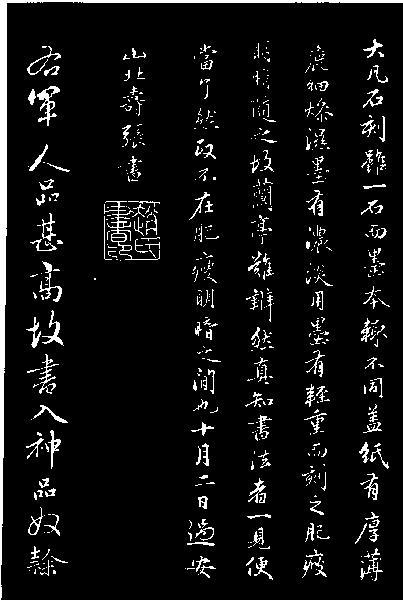 大凡石刻雖一石而墨本輒不同蓋紙有厚薄
麤細燥濕墨有濃淡用墨有輕重而刻之肥瘦
明暗隨之故蘭亭難辨然真知書法者一見便
當了然政不在肥瘦明暗之間也十月二日過安
山北壽張書
趙氏書印
右軍人品甚高故書入神品奴隸